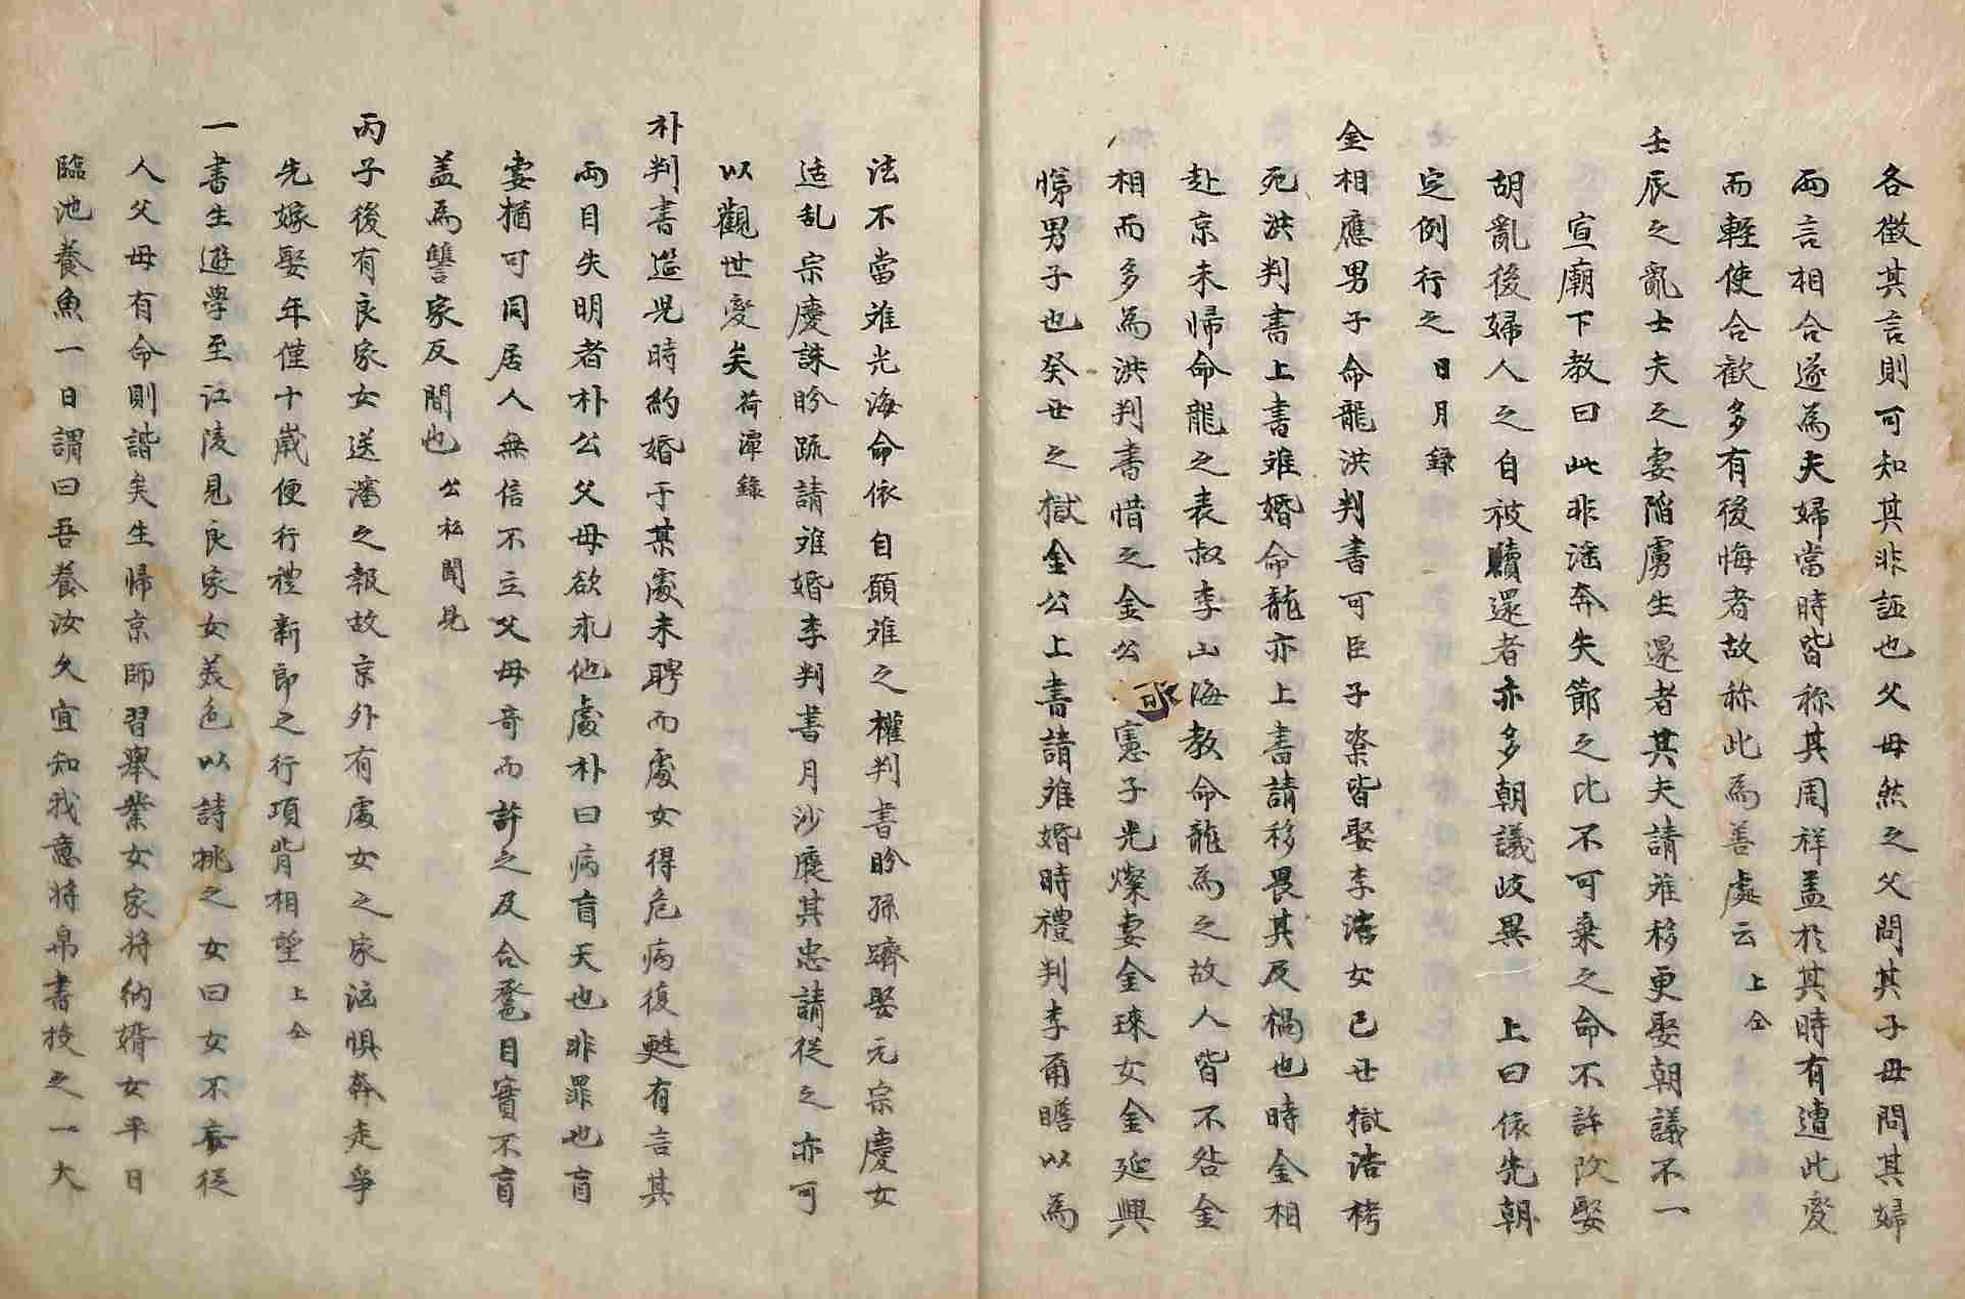 各徵其言則可知其非誣也父母然之父問其子母問其婦
兩言相合遂爲夫婦當時皆称其周祥盖於其時有遭此变
而輕使合歡多有後悔者故称此爲善處云 上仝
壬辰之亂士夫之妻陷虜生還者其夫請離移更娶朝議不一
宣廟下教曰此非滛奔失節之比不可棄之命不許改娶
胡亂後婦人之自被贖還者亦多朝議歧異 上曰依先朝
定例行之 日月録
金相應男子命龍洪判書可臣子楶皆娶李浩女己丑獄浩栲
死洪判書上書離婚命龍亦上書請移畏其及禍也時金相
赴京未帰命龍之表叔李山海教命龍爲之故人皆不咎金
相而多爲洪判書惜之金公 憲子光燦妻金琜女金延興
悌男子也癸丑之獄金公上書請離婚時禮判李甭瞻以爲
法不當離光海命依自願離之權判書盼孫躋娶元宗慶女
适乱宗慶誅盼疏請離婚李判書月沙廷其忠請従之亦可
以觀世变矣 荷潭錄
朴判書遾児時約婚于某處未聘而處女得危病復甦有言其
兩目失明者朴公父母欲求他處朴曰病盲天也非罪也盲
妻猶可同居人無信不立父母奇而許之及合巹目實不盲
盖爲讐家反間也 公私聞見
丙子後有良家女送瀋之報故京外有處女之家洶惧奔走爭
先嫁娶年僅十嵗便行禮新郎之行項背相望 上仝
一書生遊學至江陵見良家女美色以詩挑之女曰女不妄従
人父母有命則諧矣生帰京師習舉業女家将納婿女平日
臨池養魚一日謂曰吾養汝久宜知我意将帛書投之一大